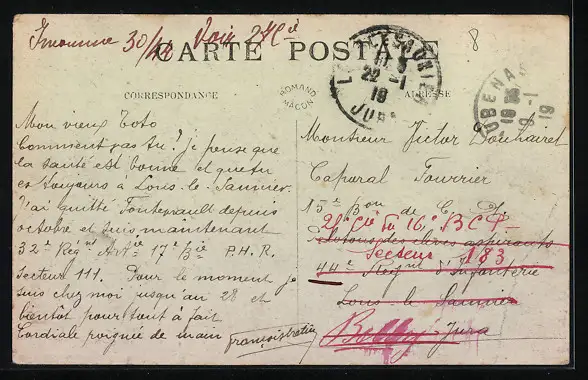 Inconnu 30/12 Voir 2e Cie
8
CARTE POSTALE
CORRESPONDANCE
ROMAND
MACON
ADRESSE
LONS-LE-SAUNIER
22 -1
19
JURA
19 -1
19
Mon vieux Toto
Comment vas tu? Je pense que
la santé est bonne et que tu
es toujours à Lons-le-Saunier.
J'ai quitté Fontevrault depuis
octobre et suis maintenant
32e Régnt Artie 17e Bie P.H.R.
Secteur 111. Pour le moment je
suis chez moi jusqu'au 28 et
bientôt pour tout à fait
Cordiale poignée de main
Monsieur Victor
Caporal Fourrier
15e Bon de C. P.
2e Cie du 16e BCP
Peloton des élèves aspirants
Secteur 183
44e Régnt d'Infanterie
Lons-le-Saunier
Belley Jura